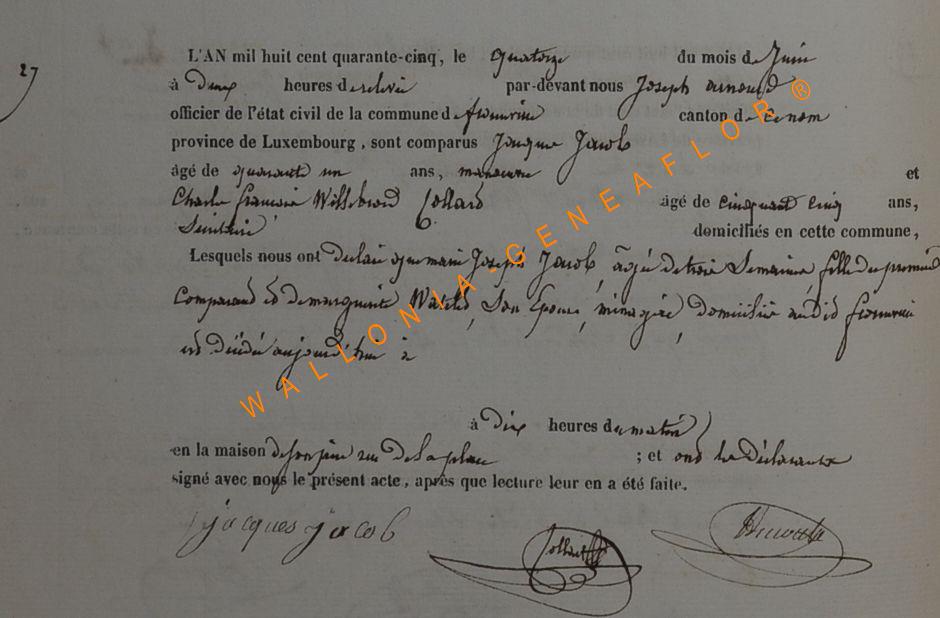 27
L'AN mil huit cent quarante-cinq, le quatorze du mois de Juin
à deux heures de relevée par-devant nous Joseph arnould
officier de l'état civil de la commune de canton de
province de Luxembourg, sont comparus Jacque Jacob
âgé de quarante un ans, manoeuvre et
Charle françois Willebrord Collard âgé de cinquante cinq ans,
domiciliés en cette commune,
Lesquels nous ont declaré que marie Joseph Jacob, agée de trois Semaines, fille du premier
comparand et de marguerite son Epouse, ménagère, domicilié audit
est décédée aujourd'hui à
à dix heures du matin
en la maison de son père rue de la place ; et ont les Déclarants
signé avec nous le présent acte, après que lecture leur en a été faite.
jacques jacob
Collard
WALLONIA-GENEAFLOR®